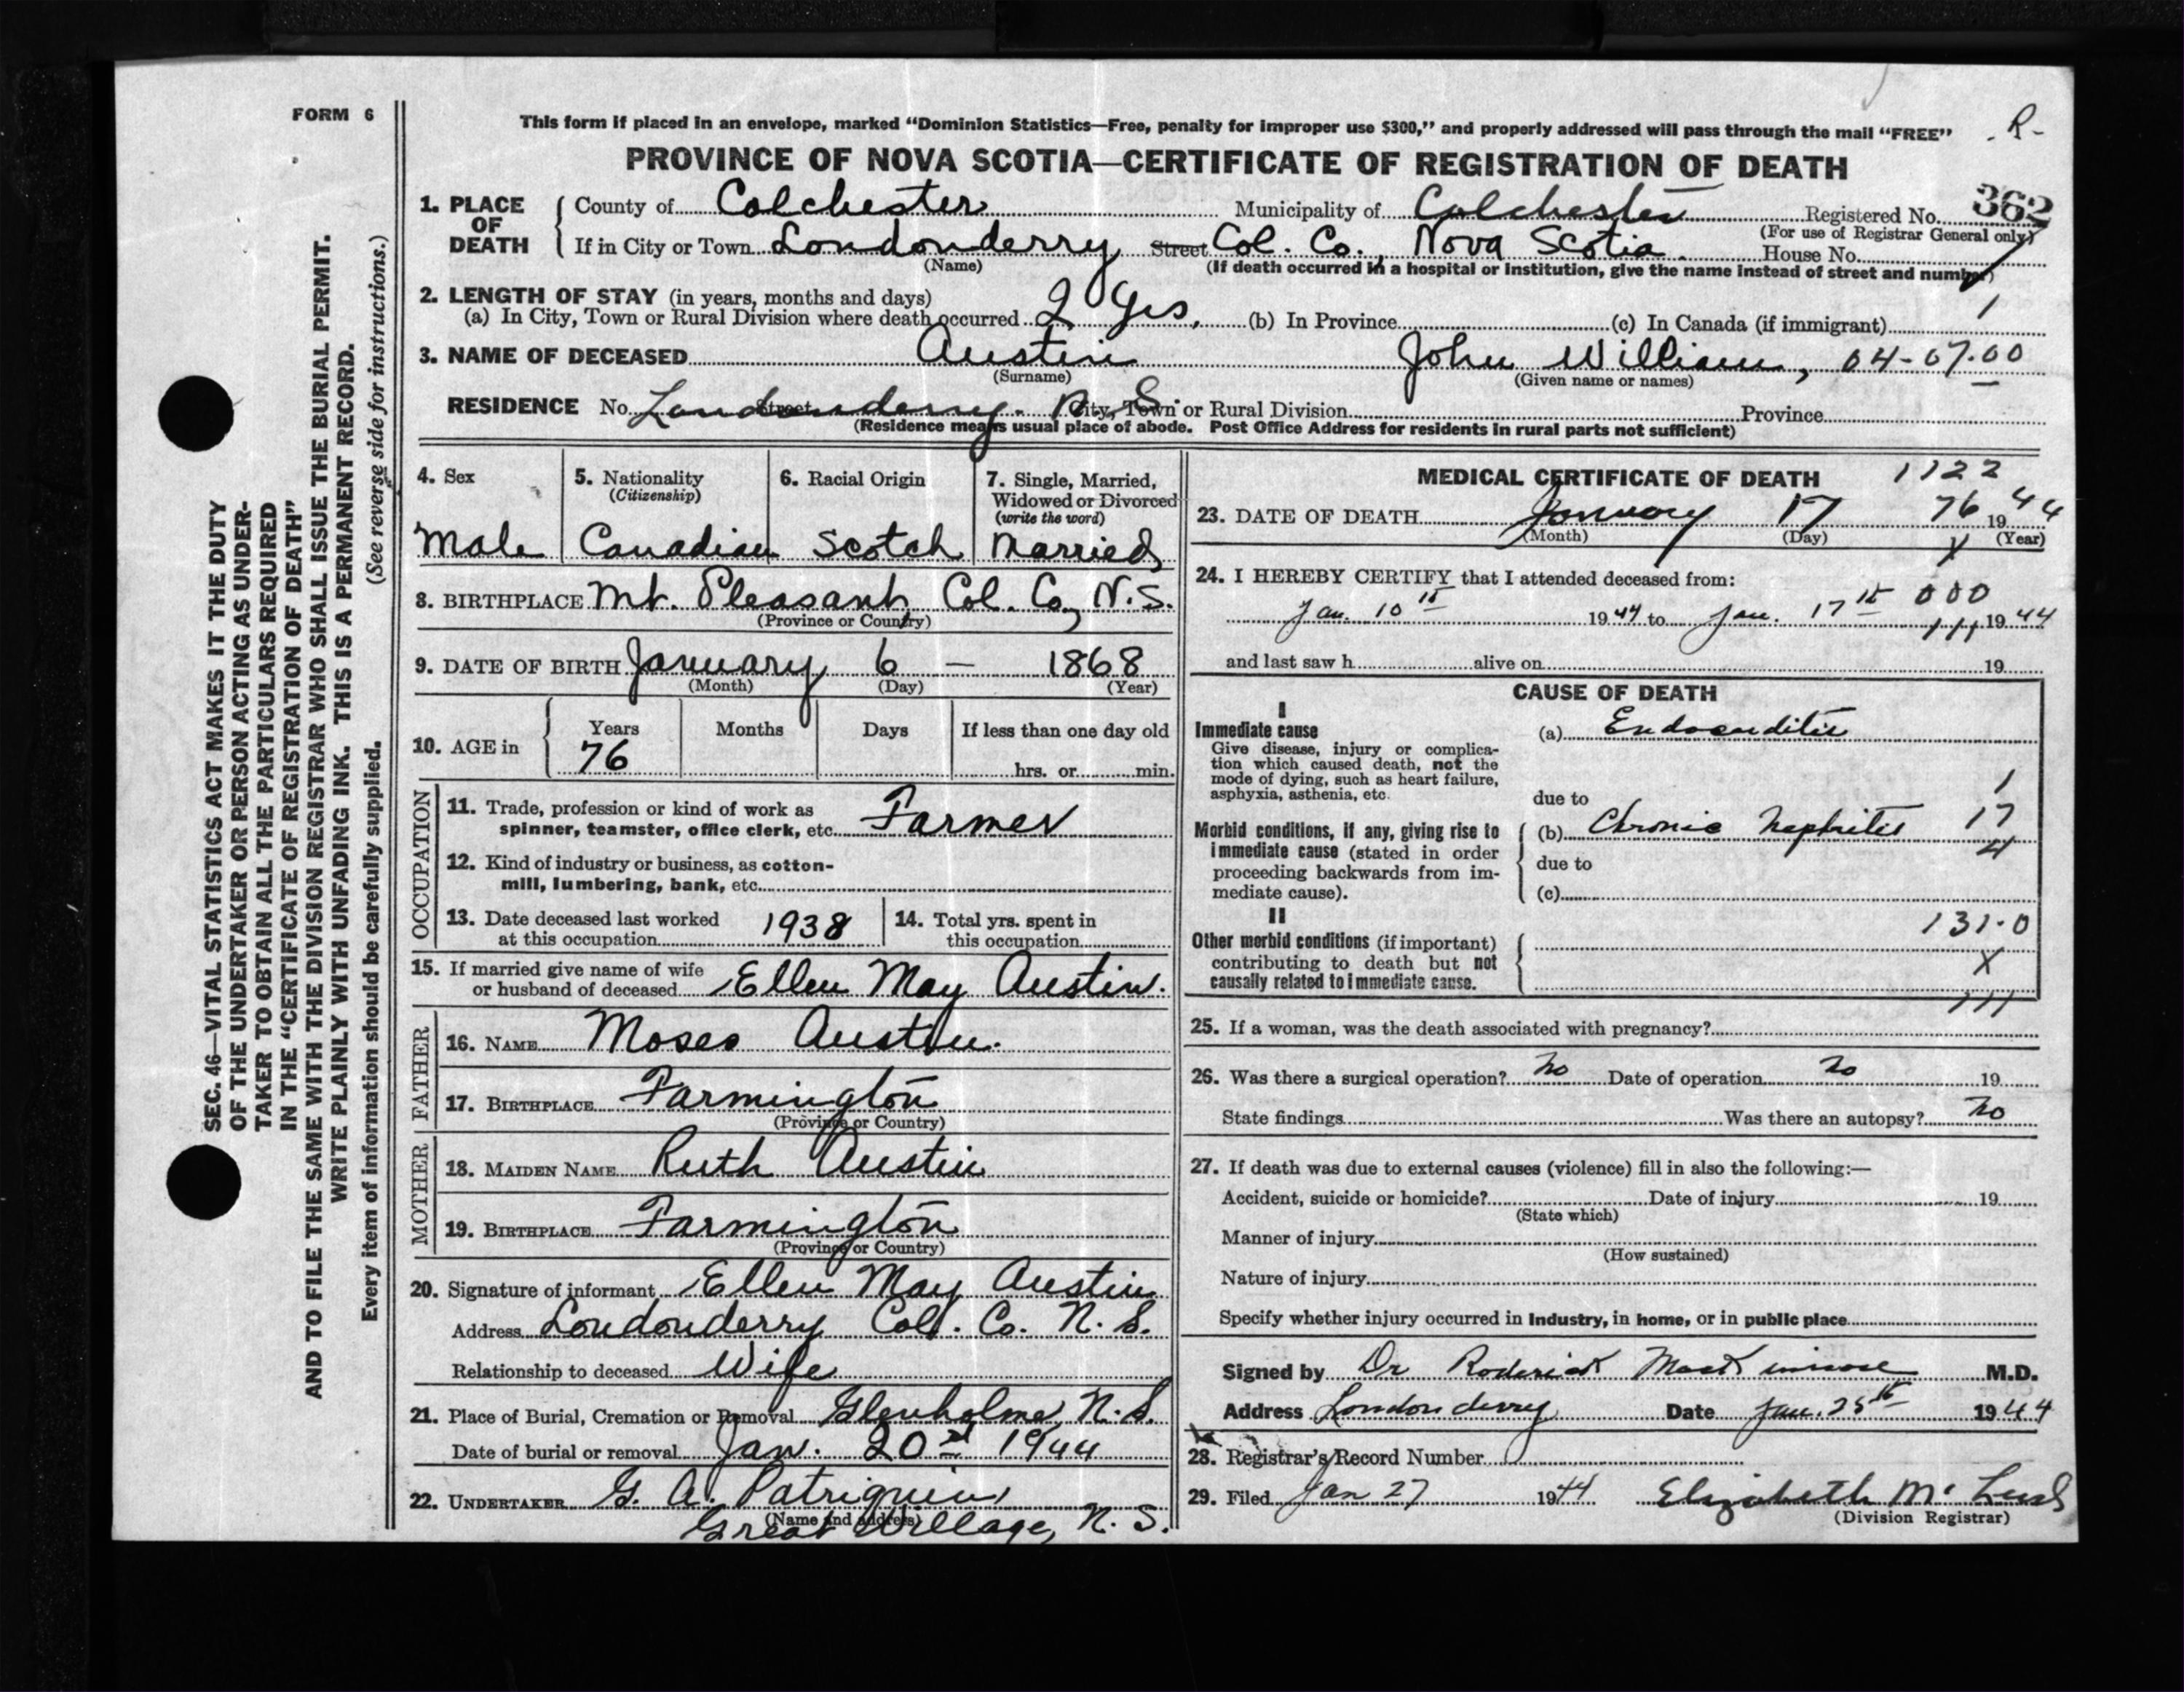 FORM 6
This form if placed in an envelope, marked “Dominion Statistics—Free, penalty for improper use $300,” and properly addressed will pass through the mail “FREE”
- R -
PROVINCE OF NOVA SCOTIA—CERTIFICATE OF REGISTRATION OF DEATH
SEC. 46—VITAL STATISTICS ACT MAKES IT THE DUTY
OF THE UNDERTAKER OR PERSON ACTING AS UNDER-
TAKER TO OBTAIN ALL THE PARTICULARS REQUIRED
IN THE “CERTIFICATE OF REGISTRATION OF DEATH”
AND TO FILE THE SAME WITH THE DIVISION REGISTRAR WHO SHALL ISSUE THE BURIAL PERMIT.
WRITE PLAINLY WITH UNFADING INK. THIS IS A PERMANENT RECORD.
Every item of information should be carefully supplied. (See reverse side for instructions.)
1. PLACE OF DEATH
County of Colchester Municipality of Colchester Registered No. 362
(For use of Registrar General only)
If in City or Town Londonderry Street Col. Co., Nova Scotia. House No.
(Name) (If death occurred in a hospital or institution, give the name instead of street and number)
2. LENGTH OF STAY (in years, months and days)
(a) In City, Town or Rural Division where death occurred 2 Yrs. (b) In Province (c) In Canada (if immigrant) 1
3. NAME OF DECEASED Austin John William, 04-07.00
(Surname) (Given name or names)
RESIDENCE No. Londonderry. N.S. Street City, Town or Rural Division Province
(Residence means usual place of abode. Post Office Address for residents in rural parts not sufficient)
4. Sex
Male
5. Nationality
(Citizenship)
Canadian
6. Racial Origin
Scotch
7. Single, Married,
Widowed or Divorced
(write the word)
Married
8. BIRTHPLACE Mt. Pleasant, Col. Co., N.S.
(Province or Country)
9. DATE OF BIRTH January 6 — 1868
(Month) (Day) (Year)
10. AGE in Years Months Days If less than one day old
76 hrs. or min.
OCCUPATION
11. Trade, profession or kind of work as
spinner, teamster, office clerk, etc. Farmer
12. Kind of industry or business, as cotton-
mill, lumbering, bank, etc.
13. Date deceased last worked
at this occupation 1938
14. Total yrs. spent in
this occupation
15. If married give name of wife
or husband of deceased Ellen May Austin.
FATHER
16. NAME Moses Austin.
17. BIRTHPLACE Farmington
(Province or Country)
MOTHER
18. MAIDEN NAME Ruth Austin
19. BIRTHPLACE Farmington
(Province or Country)
20. Signature of informant Ellen May Austin
Address Londonderry Col. Co. N.S.
Relationship to deceased Wife
21. Place of Burial, Cremation or Removal Glenholme, N.S.
Date of burial or removal Jan. 20 1944
22. UNDERTAKER G. A. Patriquin,
(Name and address)
Great Village, N.S.
MEDICAL CERTIFICATE OF DEATH 1122
23. DATE OF DEATH January 17 76 1944
(Month) (Day) (Year)
X
24. I HEREBY CERTIFY that I attended deceased from:
000
Jan. 10th 1944 to Jan. 17th 1944
111
and last saw h alive on 19
CAUSE OF DEATH
I
Immediate cause
Give disease, injury or complica-
tion which caused death, not the
mode of dying, such as heart failure,
asphyxia, asthenia, etc.
(a) Endocarditis
1
due to
Morbid conditions, if any, giving rise to
immediate cause (stated in order
proceeding backwards from im-
mediate cause).
(b) Chronic Nephritis 17
4
due to
(c)
II
131.0
Other morbid conditions (if important)
contributing to death but not
causally related to immediate cause.
X
111
25. If a woman, was the death associated with pregnancy?
26. Was there a surgical operation? No Date of operation No 19
State findings Was there an autopsy? No
27. If death was due to external causes (violence) fill in also the following:—
Accident, suicide or homicide? Date of injury 19
(State which)
Manner of injury
(How sustained)
Nature of injury
Specify whether injury occurred in industry, in home, or in public place
Signed by Dr Roderick M.D.
Address Londonderry Date Jan. 25th 1944
28. Registrar's Record Number
29. Filed Jan 27 1944 Elizabeth
(Division Registrar)